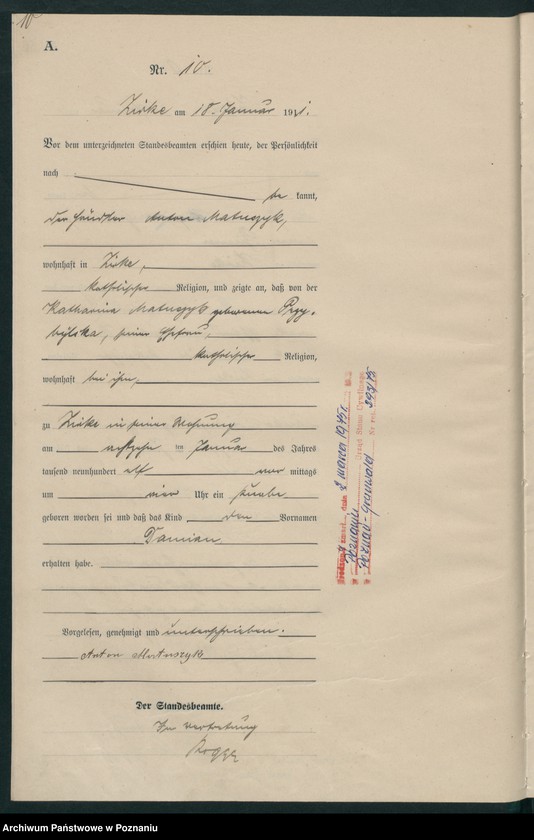 10
A.
Nr. 10.
Zirke am 18. Januar 1911.
Vor dem unterzeichneten Standesbeamten erschien heute, der Persönlichkeit
nach
be kannt,
der Händler Anton Matuszyk,
wohnhaft in Zirke,
katholischer Religion, und zeigte an, daß von der
Katharina Matuszyk geborenen Przy-
bylska, seiner Ehefrau,
katholischer Religion,
wohnhaft bei ihm,
zu Zirke in seiner Wohnung
am achtzehn ten Januar des Jahres
tausend neunhundert elf vor mittags
um vier Uhr ein Knabe
geboren worden sei und daß das Kind den Vornamen
Damian
erhalten habe.
Vorgelesen, genehmigt und unterschrieben.
Anton Matuszyk
Der Standesbeamte.
In Vertretung
dnia 2 marca 1975 r.
Poznaniu Urząd Stanu Cywilnego
Poznań-Grunwald Nr rej.
Archiwum Państwowe w Poznaniu